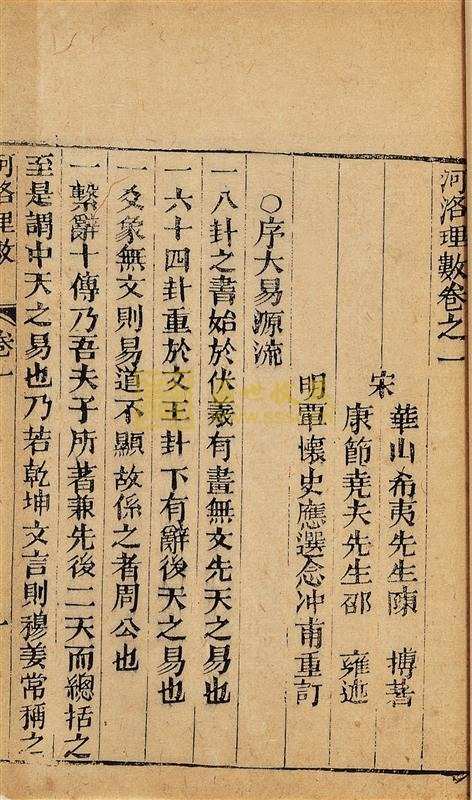 河洛理數卷之一
宋
華山希夷先生陳 摶著
康節堯夫先生邵 雍述
明覃懷史應選念冲甫重訂
○序大易源流
一八卦之書始於伏羲有畫無文先天之易也
一六十四卦重於文王卦下有辭後天之易也
一爻象無文則易道不顯故係之者周公也
一繫辭十傳乃吾夫子所著兼先後二天而總括之
至是謂中天之易也乃若乾坤文言則穆姜常稱之
河洛理數
卷一
一